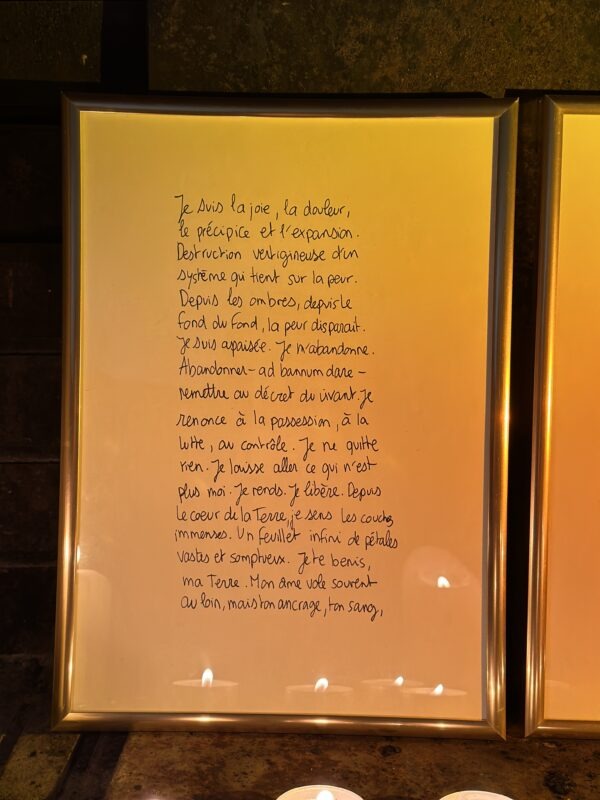 Je suis la joie, la douleur,
le précipice et l'expansion.
Destruction vertigineuse d'un
système qui tient sur la peur.
Depuis les ombres, depuis le
fond du fond, la peur disparait.
Je suis apaisée. Je m'abandonne.
Abandonner - ad bannum dare -
remettre au décret du vivant. Je
renonce à la possession, à la
lutte, au contrôle. Je ne quitte
rien. Je laisse aller ce qui n'est
plus moi. Je rends. Je libère. Depuis
le coeur de la Terre, je sens les couches
immenses. Un feuillet infini de pétales
vastes et somptueux. Je te bénis,
ma Terre. Mon âme vole souvent
au loin, mais ton ancrage, ton sang,